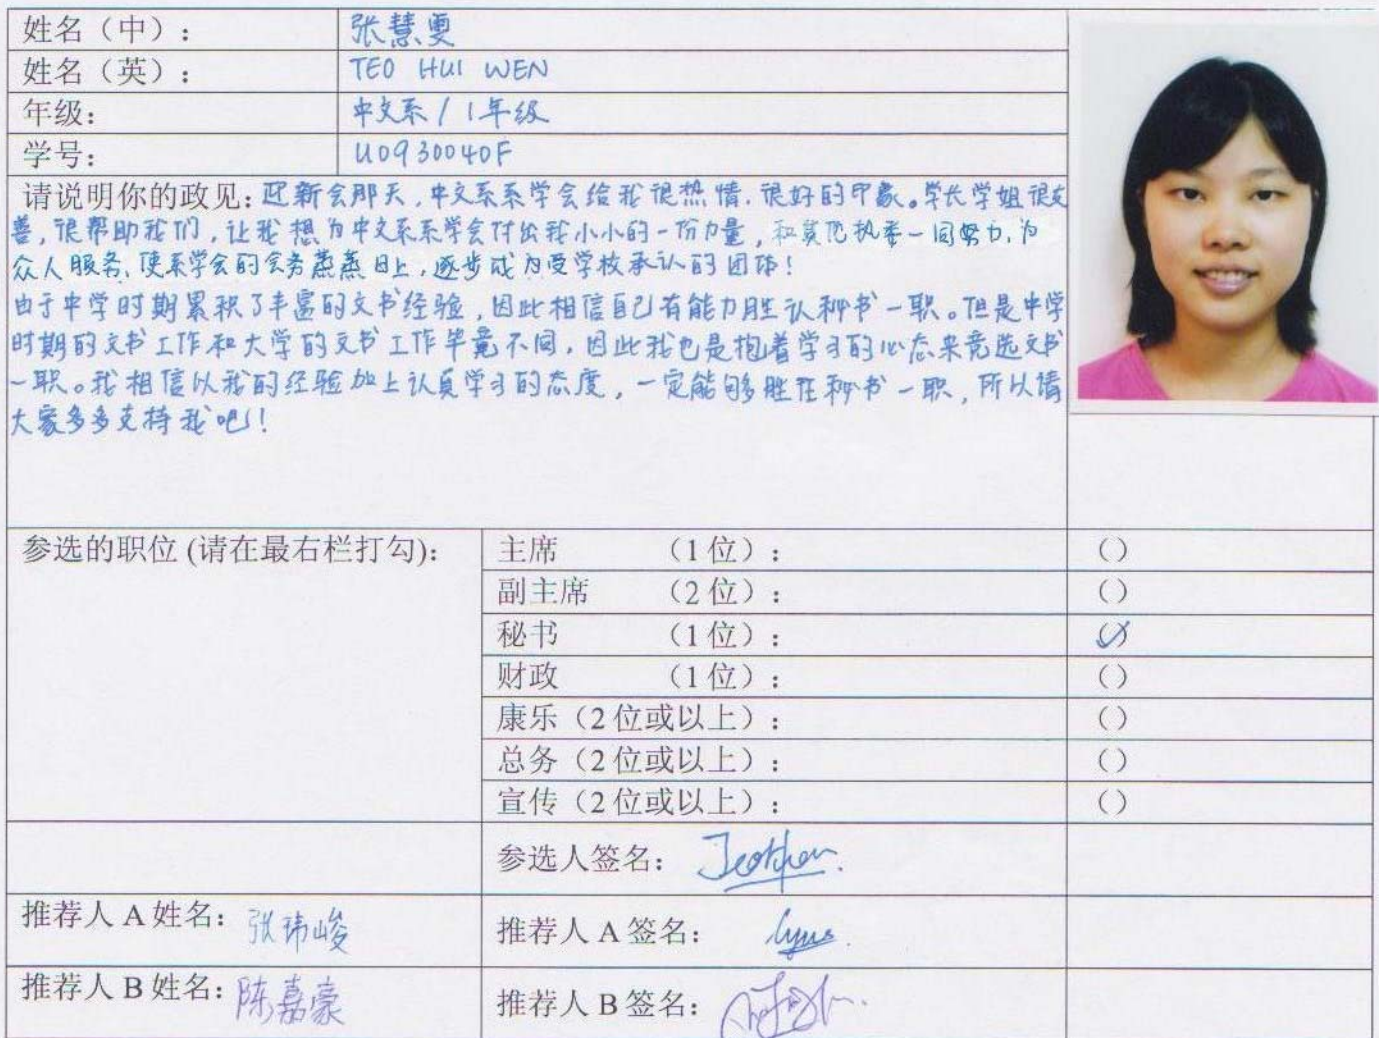 姓名（中）： 张慧雯
姓名（英）： TEO HUI WEN
年级： 中文系 / 1年级
学号： U0930040F
请说明你的政见：迎新会那天，中文系系学会给我很热情、很好的印象。学长学姐很友
善，很帮助我们，让我想为中文系系学会付出我小小的一份力量，和其他执委一同努力，为
众人服务、使系学会的会务蒸蒸日上，逐步成为受学校承认的团体！
由于中学时期累积了丰富的文书经验，因此相信自己有能力胜认秘书一职。但是中学
时期的文书工作和大学的文书工作毕竟不同，因此我也是抱着学习的心态来竞选文书
一职。我相信以我的经验加上认真学习的态度，一定能够胜任秘书一职，所以请
大家多多支持我吧！
参选的职位 (请在最右栏打勾)： 主席 （1 位）： （）
副主席 （2 位）： （）
秘书 （1 位）： （✓）
财政 （1 位）： （）
康乐（2 位或以上）： （）
总务（2 位或以上）： （）
宣传（2 位或以上）： （）
参选人签名：
推荐人 A 姓名： 张玮峻 推荐人 A 签名：
推荐人 B 姓名： 陈嘉豪 推荐人 B 签名：